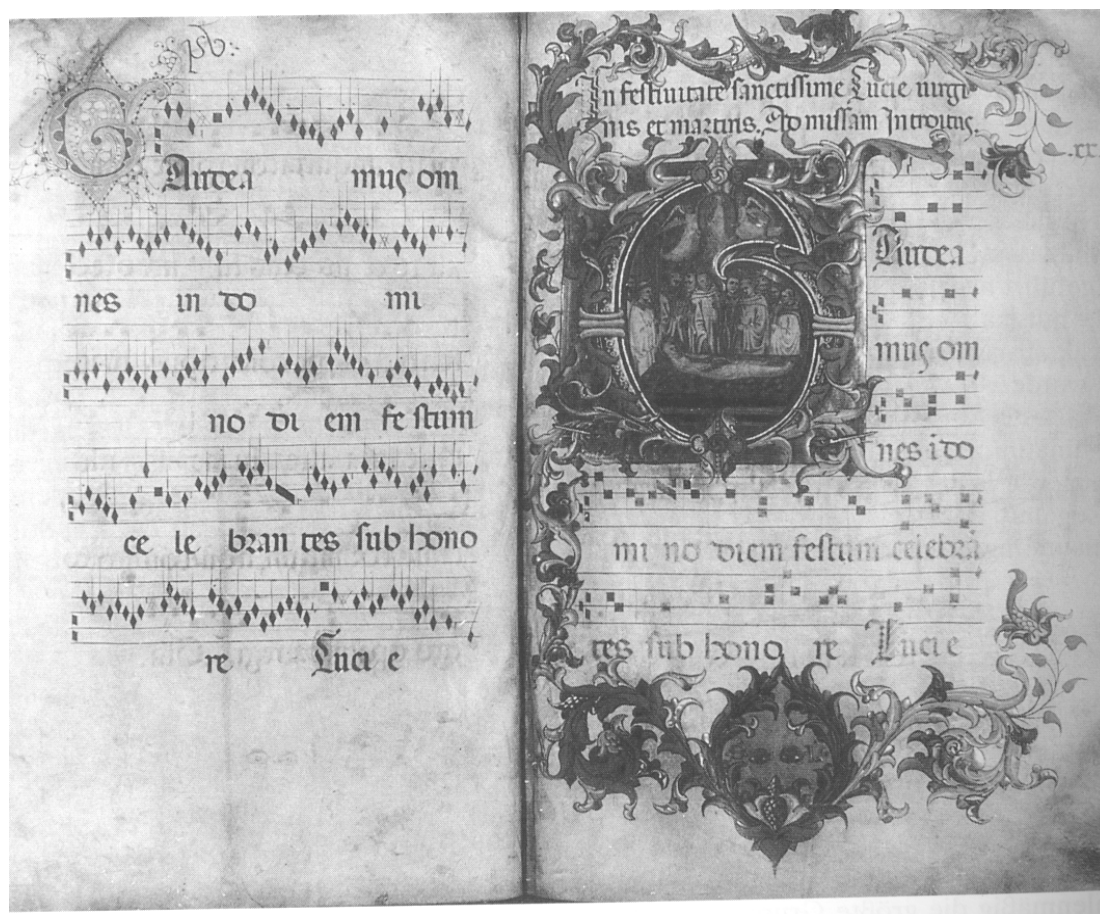 Gaudea mus om
nes in do mi
no di em fe stum
ce le bran tes sub hono
re Lucie e
In festiuitate sanctissime Lucie uirgi
nis et martiris. Ad missam Introitus.
.xx.
Gaudea
mus om
nes i do
mi no diem festum celebrā
tes sub hono re Lucie